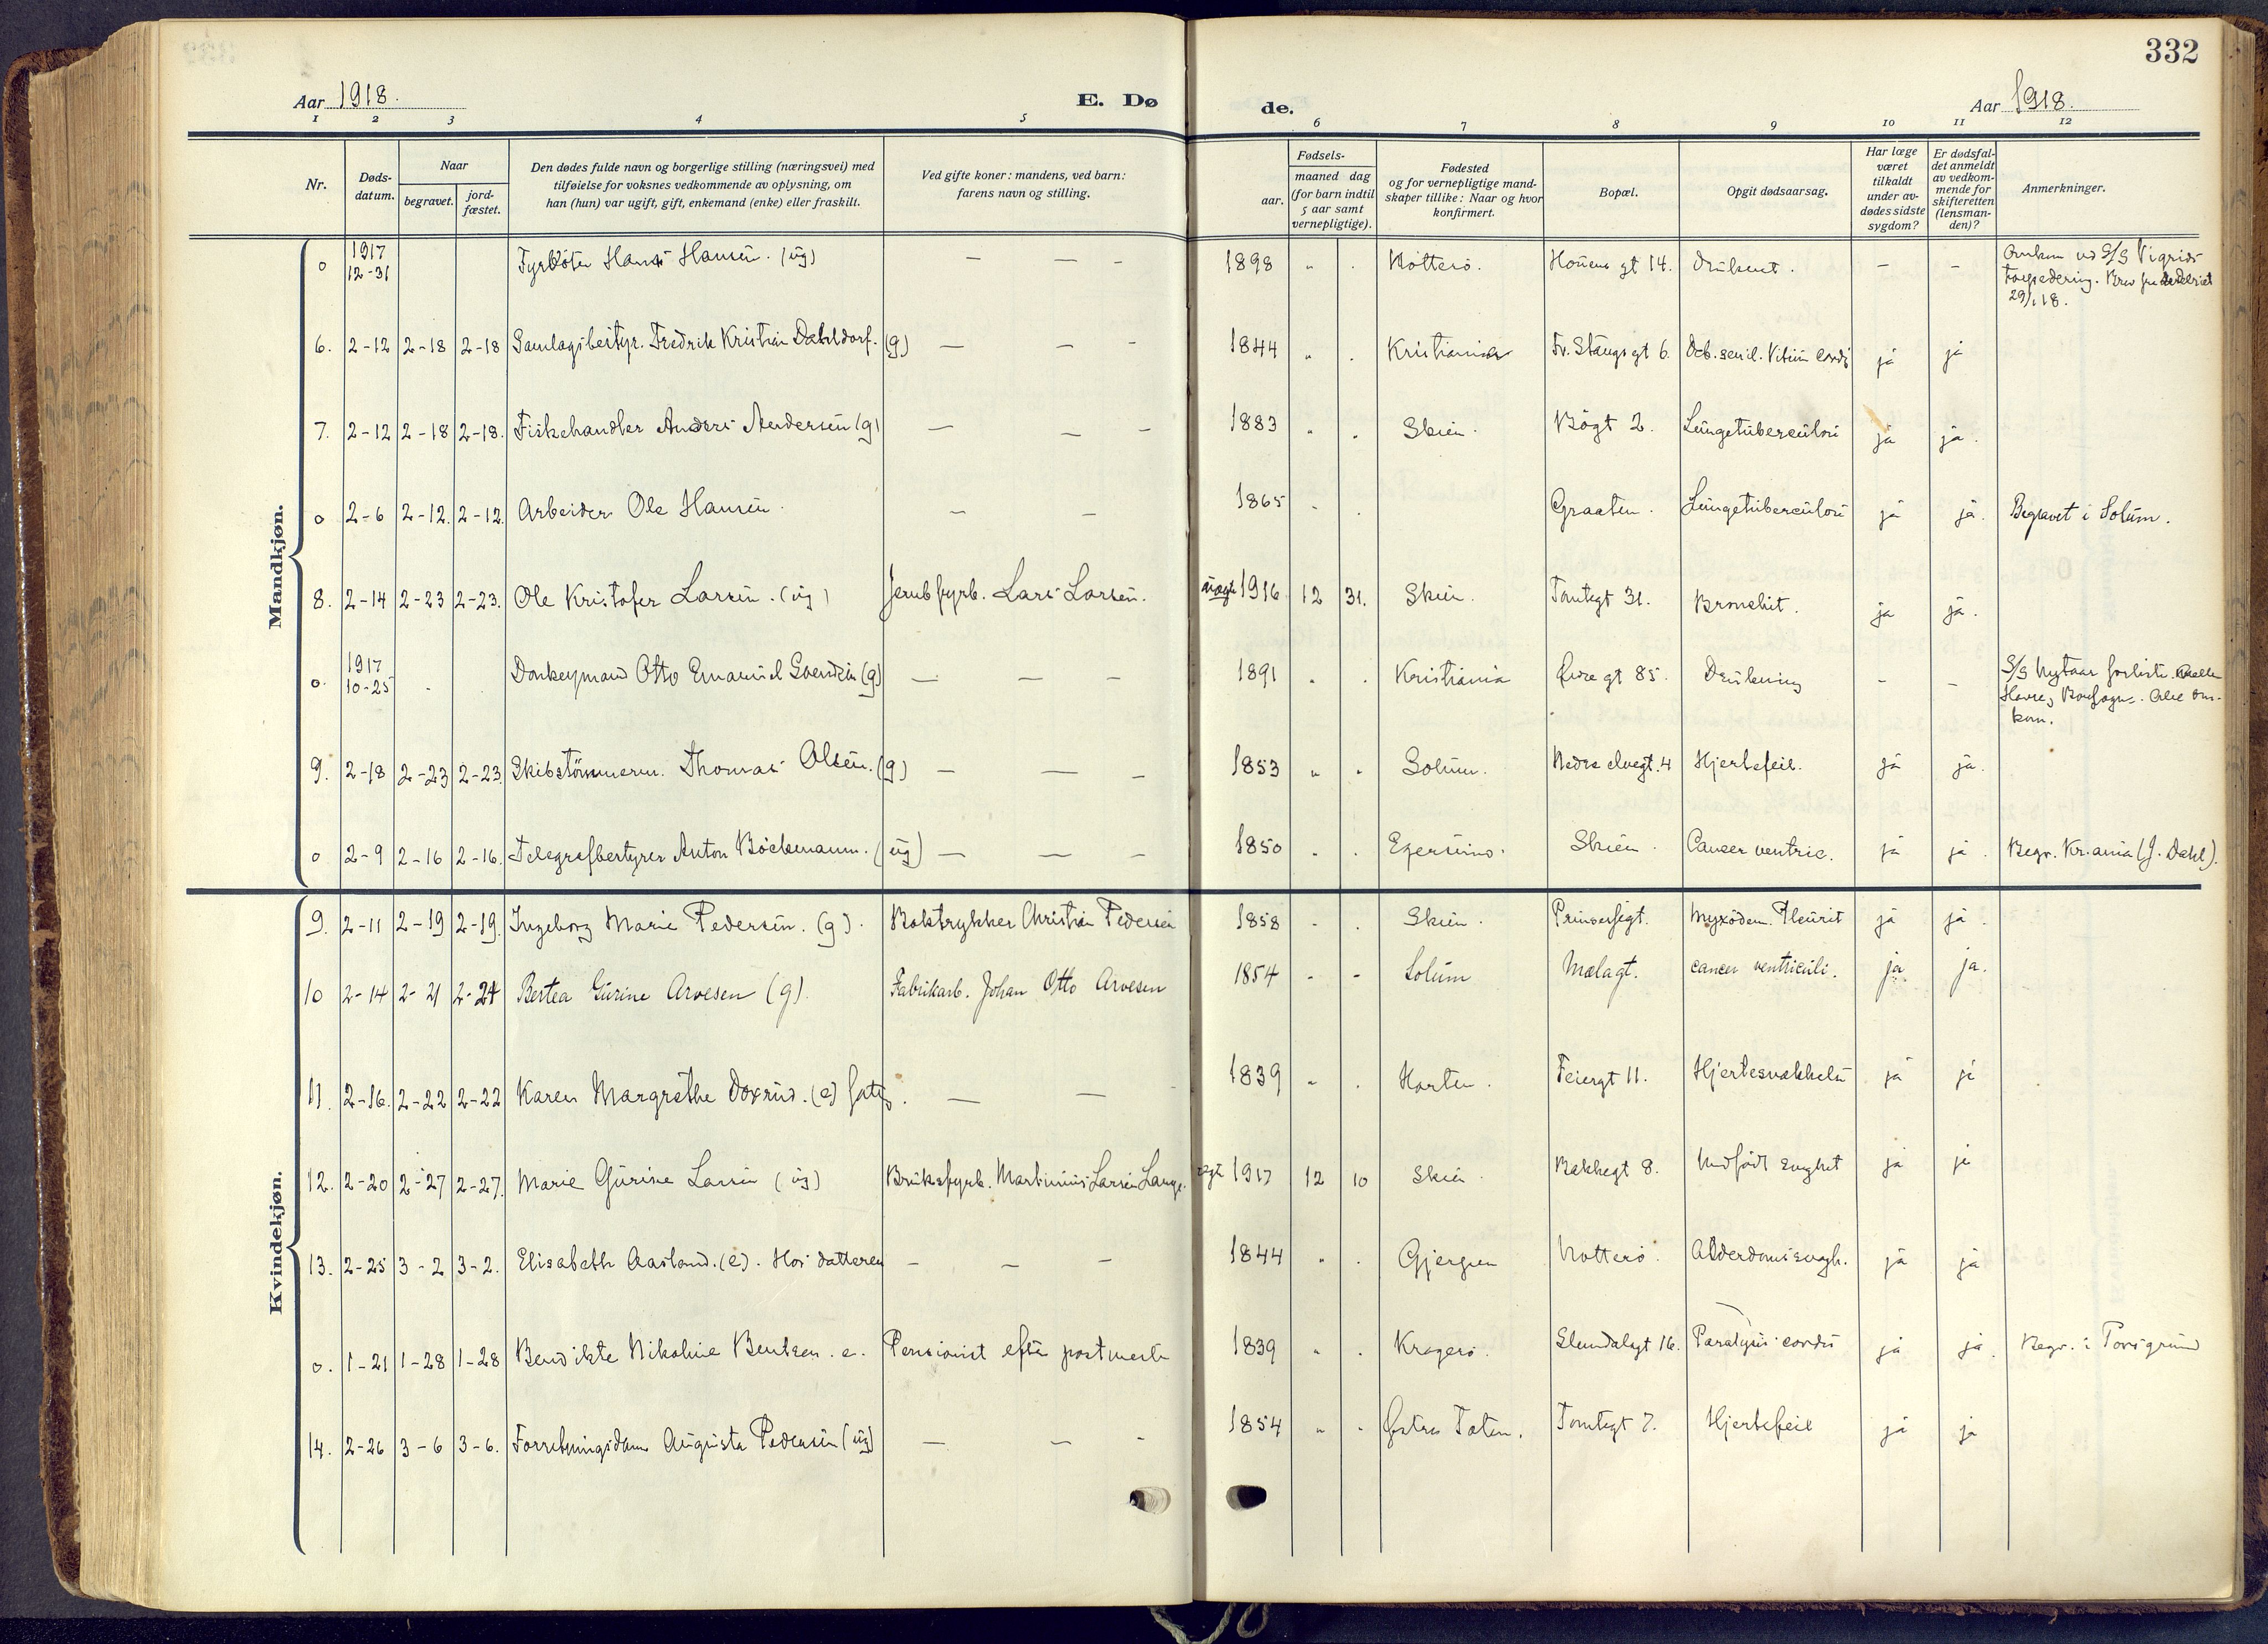 332
Aar 1918. E. Dø de. Aar 1918.
1 2 3 4 5 6 7 8 9 10 11 12
Nr.
Døds-
datum.
Naar
begravet.
jord-
fæstet.
Den dødes fulde navn og borgerlige stilling (næringsvei) med
tilføielse for voksnes vedkommende av oplysning, om
han (hun) var ugift, gift, enkemand (enke) eller fraskilt.
Ved gifte koner: mandens, ved barn:
farens navn og stilling.
Fødsels-
aar.
maaned dag
(for barn indtil
5 aar samt
vernepligtige).
Fødested
og for vernepligtige mand-
skaper tillike: Naar og hvor
konfirmert.
Bopæl.
Opgit dødsaarsag.
Har læge
været
tilkaldt
under av-
dødes sidste
sygdom?
Er dødsfal-
det anmeldt
av vedkom-
mende for
skifteretten
(lensman-
den)?
Anmerkninger.
Mandkjøn.
o 1917 12-31 Fyrbøter Hans Hansen. (ug) — — — 1898 " . Nötterö. Houens gt 14. druknet. — — Omkom ved S/S Vigrids
Torpedering. Brev fra
29/1 18.
6. 2-12 2-18 2-18 Samlagsbestyr. Fredrik Kristian Dahldorf. (g) — — — 1844 " . Kristiania Fr. Stangs gt 6. Deb. senil. Vitium cordis ja ja
7. 2-12 2-18 2-18. Fiskehandler Anders Andersen (g) — — — 1883 " . Skien. Bögt 2. Lungetuberculose ja ja.
o 2-6 2-12. 2-12. Arbeider Ole Hansen. — — 1865 " . Graaten. Lungetuberculose ja ja. Begravet i Solum.
8. 2-14 2-23 2-23. Ole Kristofer Larsen. (ug) Jernbfyrb. Lars Larsen. 1916 12 31. Skien. Tomtegt 31. Bronchit. ja ja.
o. 1917 10-25 . Donkeymand Otto Emanuel Svendsen (g) — — — 1891 " . Kristiania Øvre gt 85. Drukning — — S/S Nytaar forliste. mellem
Havre, Boulogne. Alle om-
kom.
9. 2-18 2-23 2-23. Skibstømmerm. Thomas Olsen. (g) — — — 1853 " . Solum. Nedre elvegt. 4 Hjertefeil. ja ja.
o 2-9 2-16 2-16. Telegrafbestyrer Anton Böckmann. (ug) — — — 1850 " . Egersund. Skien. Cancer ventric. ja ja. Begr. Kr.ania (J. Dahl).
Kvindekjøn.
9. 2-11 2-19 2-19. Ingeborg Marie Pedersen. (g). Boktrykker Christian Pedersen 1858 - . Skien. Prinsessegt. Myxödem. Pleurit ja ja.
10 2-14 2-21 2-21 Bertea Gurine Arvesen (g). Fabrikarb. Johan Otto Arvesen 1854 - - Solum Mælagt. cancer ventriculi. ja ja.
11. 2-16. 2-22 2-22 Karen Margrethe Doxrud. (e) — — 1839 " . Horten. Feiergt 11. Hjertesvakhelse ja ja
12. 2-20 2-27 2-27. Marie Gurine Larsen (ug) Bruksfyrb. Martinius Larsen Lange. 1917 12 10 Skien. Bakkegt 8. Medfödt svaghet ja ja
13. 2-25 3-2 3-2. Elisabeth Aasland. (e). Hos datteren — — — 1844 " . Gjerpen Nötterö. Alderdomssvagh. ja ja
o. 1-21 1-28 1-28 Bendikte Nikoline Bentzen. e. Pensionist efter postmester 1839 " . Kragerö. Slemdalsgt 16. Paralysis cordis ja ja. Begr. i Porsgrund
14. 2-26 3-6 3-6. Forretningsdame Augusta Pedersen (ug) — — — 1854 " . Østre Toten. Tomtegt 7. Hjertefeil ja ja